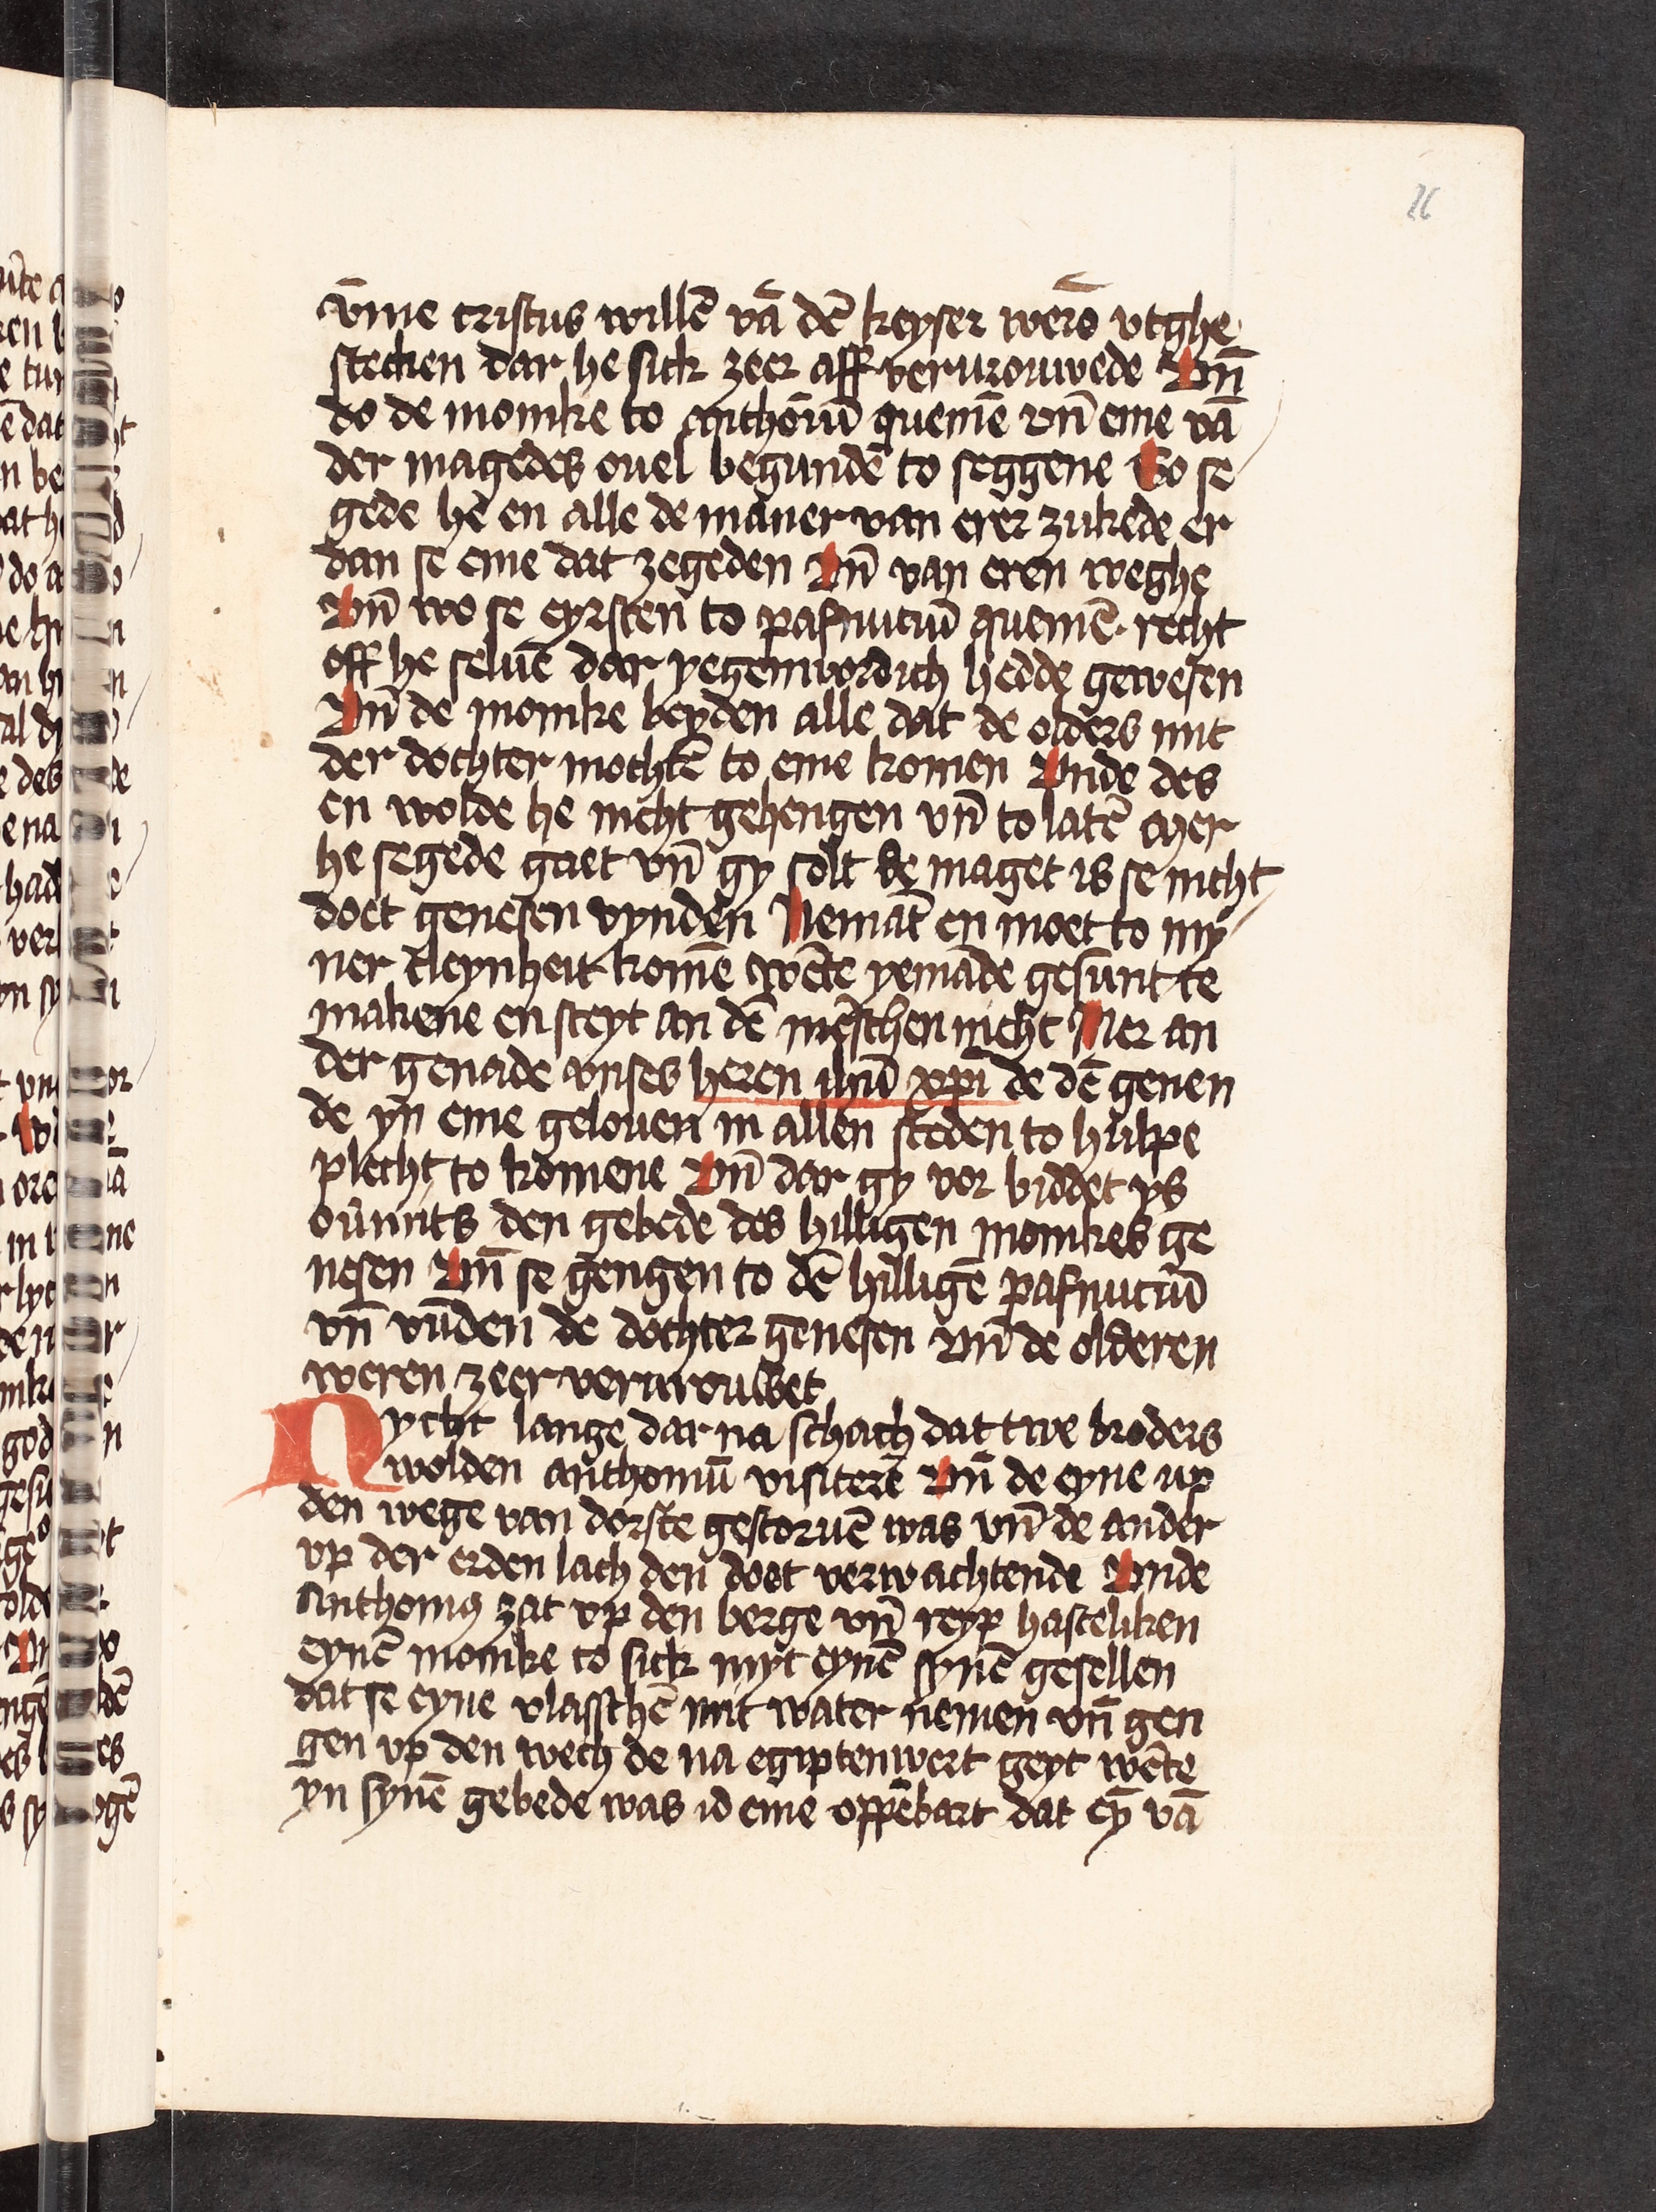 26
v̄me cristus willē vā dē keyser werē vtghe
steken dar he sick zeer aff vervrouwede Vn̄
do de monike to anthoniū quemē vn̄ eme vā
der magedes ouel begundē to seggene So se
gede he en alle de maner van erer zukede er
dan se eme dat zegeden Vn̄ van eren weghe
Vn̄ wo se eyrsten to pafnuciū quemē recht
off he seluē dar yegenwordich hedde gewesen
Vn̄ de monike beyden alle dat de olders mit
der dochter mochtē to eme komen Vnde des
en wolde he nicht gehengen vn̄ to latē Mer
he segede gaet vn̄ gy solt de maget is se nicht
doet genesen vynden Nemāt en moet to my
ner cleynheit komē wēte yemāde gesunt te
makene en steyt an dē mēschen nicht Mer an
der genade vnses heren ihū xp̄i de dē genen
de yn eme gelouen in allen steden to hulpe
plecht to komene Vn̄ dar gy vor biddet ys
ouermits den gebede des hilligen monikes ge
nesen Vn̄ se gengen to dē hilligē pafnuciū
vn̄ vūden de dochter genesen Vn̄ de olderen
weren zeer vervrouwet
Nycht lange dar na schach dat twe broders
wolden anthoniū visiterē Vn̄ de eyne up
den wege van dorste gestoruē was vn̄ de ander
vp der erden lach den doet verwachtende Vnde
Anthonius zat vp den berge vn̄ reyp hasteliken
eynē monike to sick myt eynē synē gesellen
dat se eyne vlasschē mit water nemen vn̄ gen
gen vp den wech de na egiptenwert geyt wēte
yn synē gebede was id eme oppēbart dat ey̅ vā